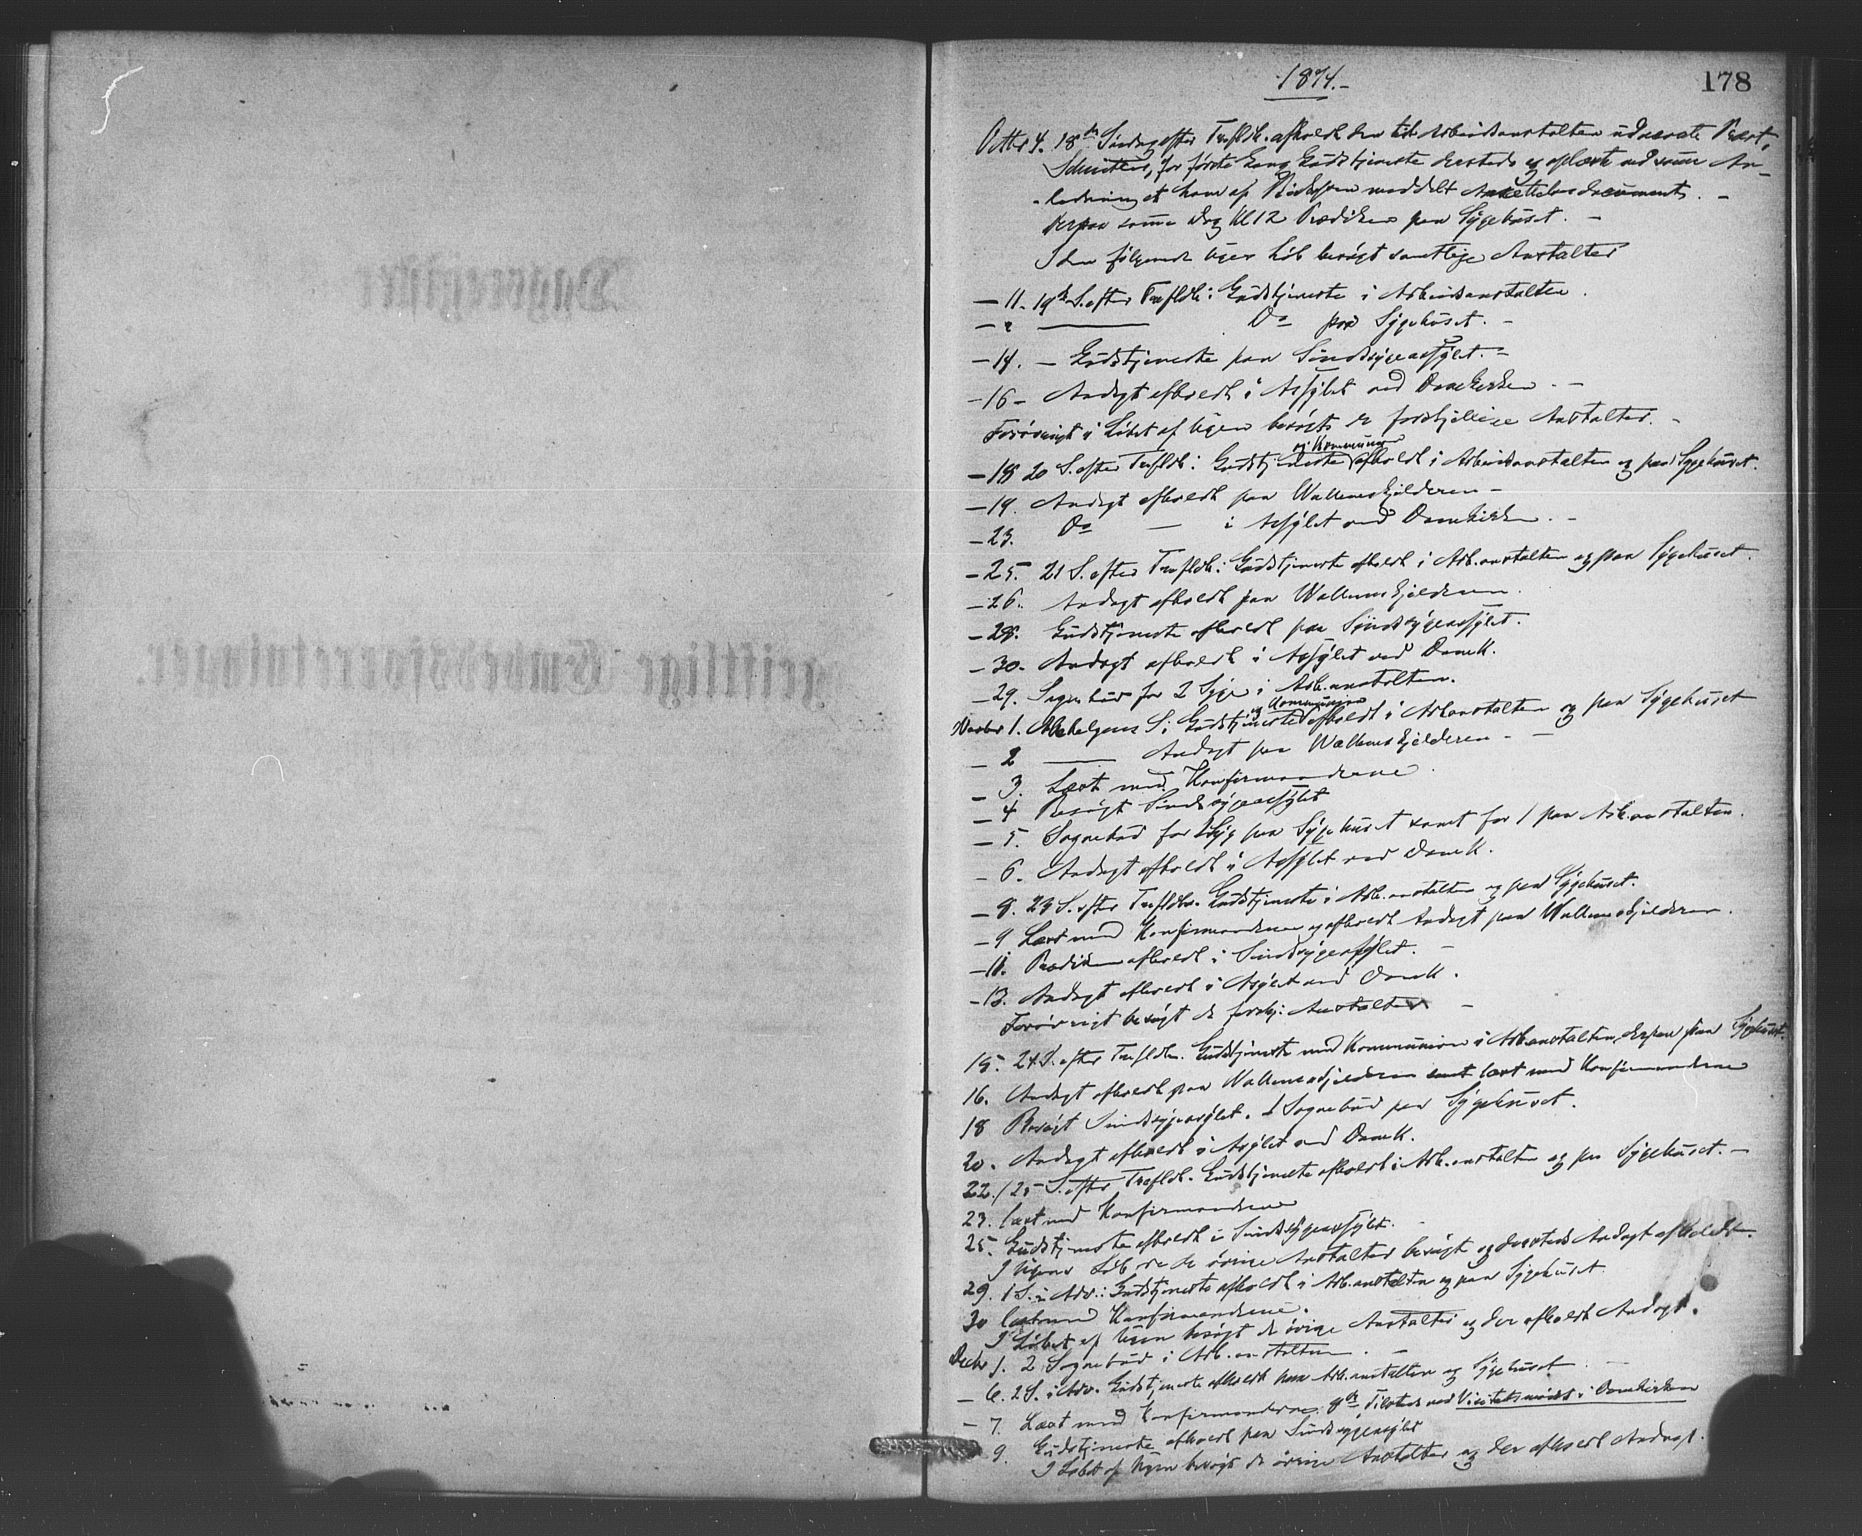 1874.-
178
Octbr 4. 18de Søndag efter Trefldh. afholdt den til Arbeidsanstalten udnævnte Præst,
for første Gang Gudstjeneste dersteds og oplæste ved samme An-
ledning et ham af Biskopen meddelt Ansættelsesdocument. -
Derpaa samme Dag Kl 12 Prædiken paa Sygehuset. -
I den følgende Uges Løb besøgt samtlige Anstalter
- 11. 19de S. efter Trefldh: Gudstjeneste i Arbeidsanstalten.
- " Do paa Sygehuset. -
- 14. - Gudstjeneste paa Sindssygeasylet. -
- 16 - Andagt afholdt i Asylet ved Domkirken. -
Forøvrigt i Løbet af Ugen besøgt de forskjellige Anstalter. -
og Kommunion
- 18 20 S. efter Trefldh: Gudstjeneste afholdt i Arbeidsanstalten og paa Sygehuset.
- 19. Andagt afholdt paa Wallemskjælderen -
- 23. Do - i Asylet ved Domkirken. -
- 25. 21 S. efter Trefldh: Gudstjeneste afholdt i Arb.anstalten og paa Sygehuset.
- 26. Andagt afholdt paa Wallemskjælderen.
- 28. Gudstjeneste afholdt paa Sindssygeasylet.
- 30. Andagt afholdt i Asylet ved Domk.
- 29. Sognebud for 2 Syge i Arb.anstalten.
og Kommunion
Novbr 1. Allehelgens S: Gudstjeneste afholdt i Arb.anstalten og paa Sygehuset
- 2 Andagt paa Wallemskjælderen - -
- 3. Læst med Konfirmanderne.
- 4 Besøgt Sindssygeasylet
- 5. Sognebud for 1 Syg paa Sygehuset samt for 1 paa Arb.anstalten.
- 6. Andagt afholdt i Asylet ved Domk.
- 8. 23 S. efter Trefldh. Gudstjeneste i Arb.anstalten og paa Sygehuset.
- 9 Læst med Konfirmanderne og afholdt Andagt paa Wallemskjælderen.
- 11. Prædiken afholdt i Sindssygeasylet. -
- 13. Andagt afholdt i Asylet ved Domk.
Forøvrigt besøgt de forskj: Anstalter -
15. 24 S. efter Trefldh. Gudstjeneste med Kommunion i Arb.anstalten, derpaa paa Sygehuset.
16. Andagt afholdt paa Wallemskjælderen samt læst med Konfirmanderne
18 Besøgt Sindssygeasylet. 1 Sognebud paa Sygehuset.
20. Andagt afholdt i Asylet ved Domk.
22. 25 S. efter Trefldh. Gudstjeneste afholdt i Arb.anstalten og paa Sygehuset. -
23. læst med Konfirmanderne
25. Gudstjeneste afholdt i Sindssygeasylet.
I Ugens Løb de øvrige Anstalter besøgt og dersteds Andagt afholdt.
29. 1 S. i Adv.: Gudstjeneste afholdt i Arb.anstalten og paa Sygehuset.
30 læst med Konfirmanderne.
I Løbet af Ugen besøgt de øvrige Anstalter og der afholdt Andagt.
Decbr 1. 2 Sognebud i Arb.anstalten. -
- 6. 2 S. i Adv. Gudstjeneste afholdt paa Arb.anstalten og Sygehuset. -
- 7. Læst med Konfirmanderne. 8de Tilstede ved Visitatsmødet i Domkirken
9. Gudstjeneste afholdt paa Sindssygeasylet
I Løbet af Ugen besøgt de øvrige Anstalter og der afholdt Andagt.
Dagsregister
geistlige Embedsforretninger.